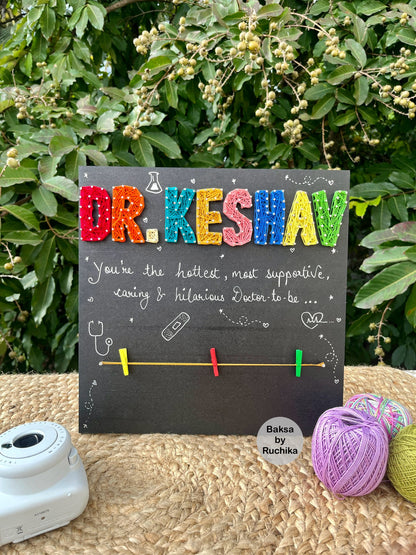 DR. KESHAV
You're the hottest, most supportive,
caring & hilarious Doctor-to-be ...
Baksa
by
Ruchika